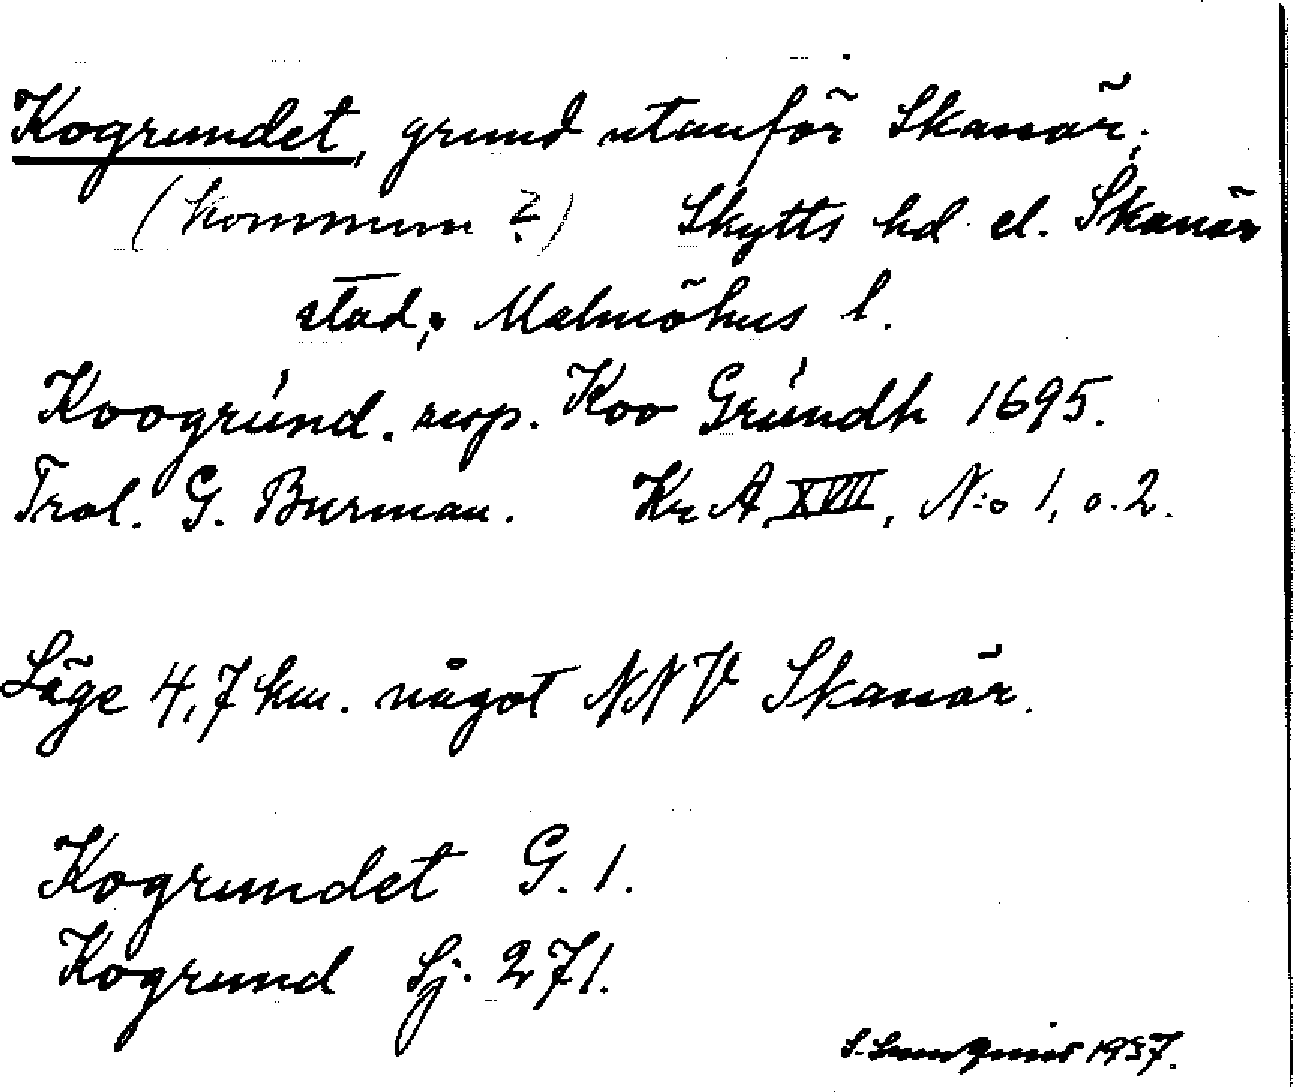 Kogrundet, grund utanför Skanör;
(kommun ?) Skytts hd el. Skanör
stad; Malmöhus l.
Koogrúnd. resp. Koo Grúndh 1695.
Trol. G. Burman. Kr A XVII, N:o 1, o. 2.
Läge 4,7 km. något NNV Skanör.
Kogrundet G. 1.
Kogrund Sj. 271.
S. 1937.